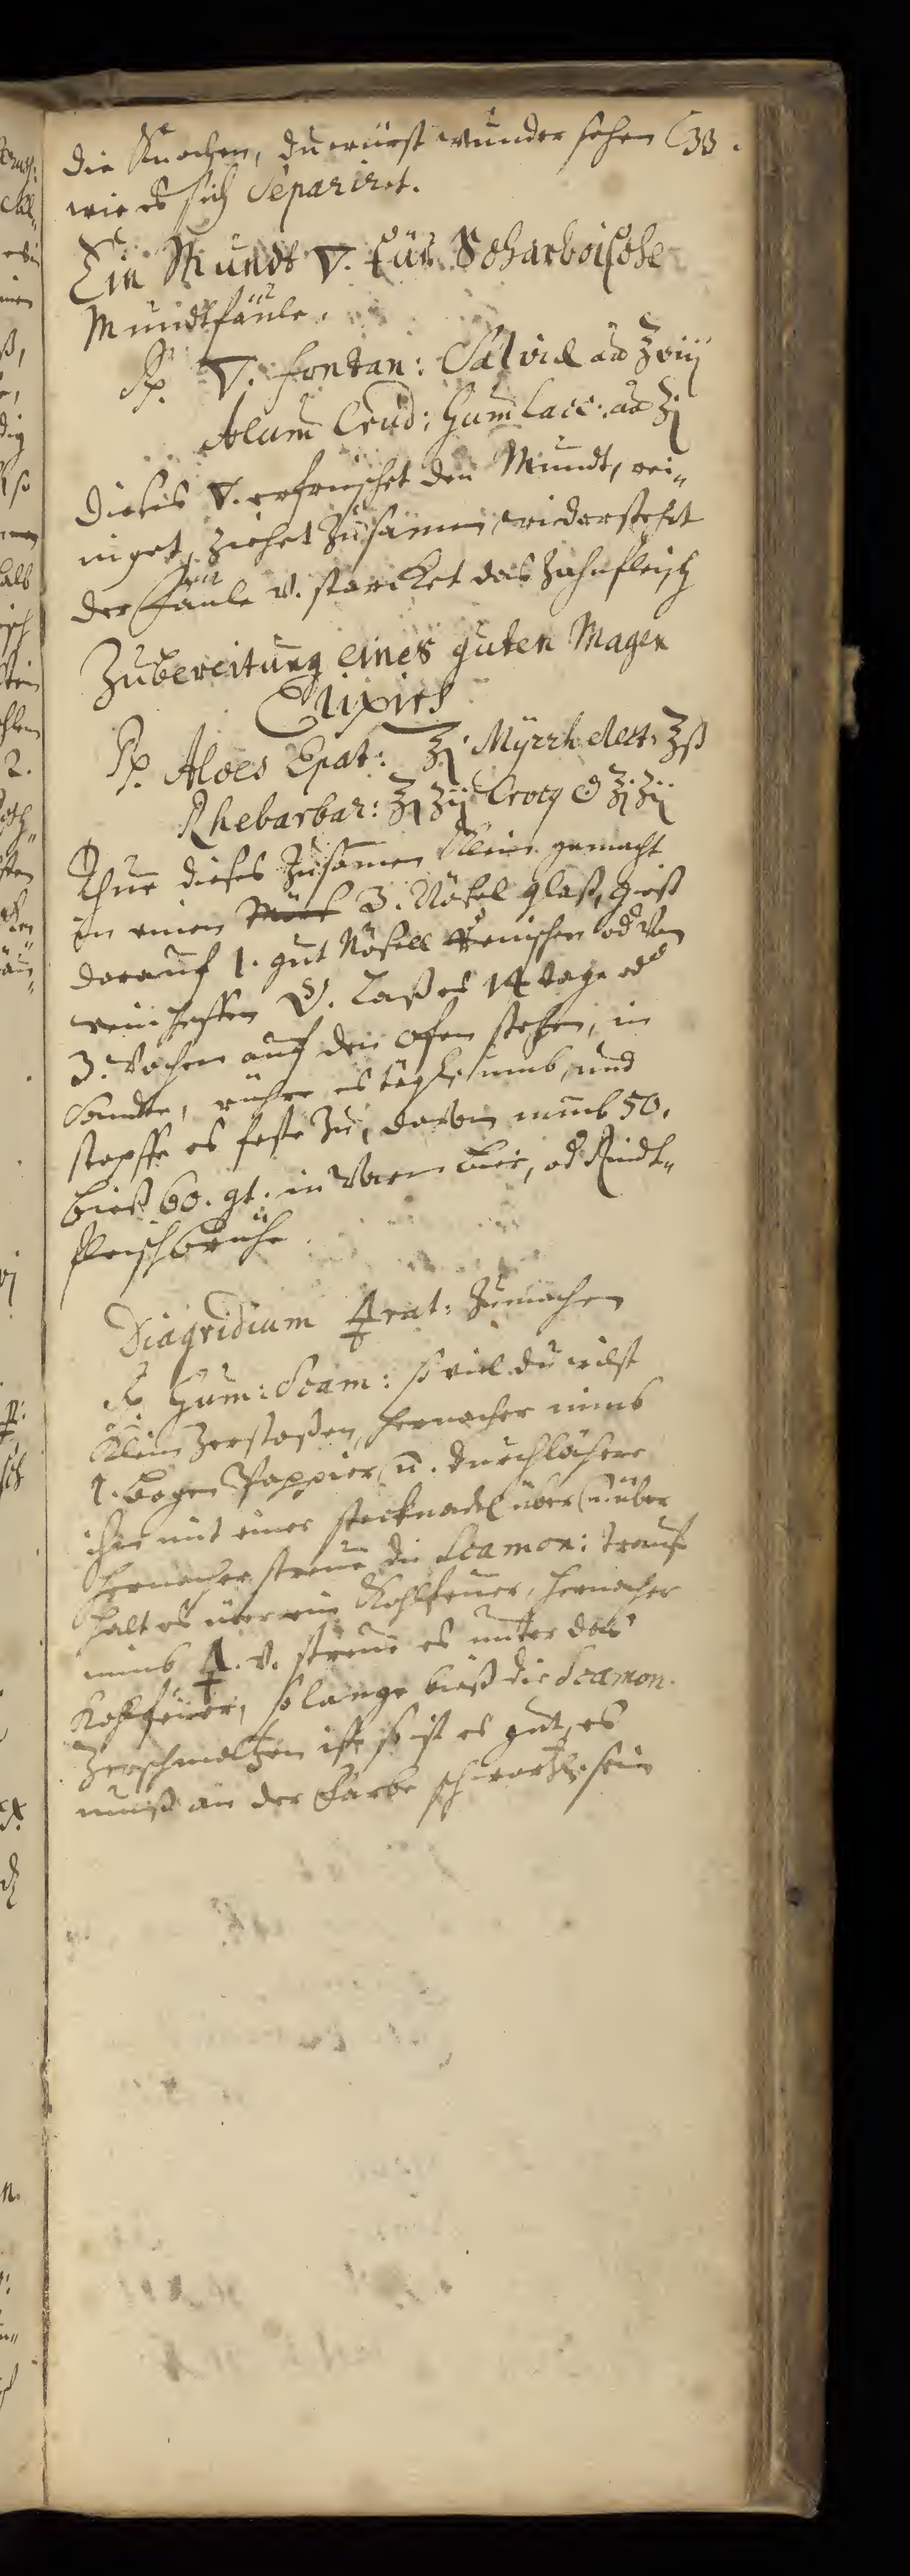 die Knochen, du würst wunder sehen 33.
wie es sich Separiret.
Ein Mundt ▽. für Scharboische
Mundtfäule.
℞. ▽. fontan: Salviæ aa ℥viij
Alum Crud: Gum Lacc: aa ℥j
Dieses ▽. erfrischet den Mundt, rei„
niget, ziehet zusamen, wiederstehet
der Fäule v. starcket das Zahnfleisch
Zubereitung eines guten Magen
Elixirs
℞. Aloes Epat: ℥j Myrrh elect: ℥ß
Rhebarbar: ℥j ʒij Crocy ℥j ʒij
Thue dieses zusamen klein gemacht
in einen 3. Nösel glaß, gieß
darauf 1. gut Nösell od von
wein heffen Laß es 14 tage od
3. Wochen auf den ofen stehen, in
Sandte, rühre es tägl. umb, und
stopffe es feste zu, davon nimb 50.
bieß 60. gt. in Warm bier, od Rindt„
fleischbrühe.
Diagridium 🜍rat: zumachen
℞ Gum: Scam: so viel du wilst
klein zerstoßen, hernacher nimb
1. bogen Pappier, u. durchlöchere
ihn mit einer stecknadel über u. über
hernacher streue die Scamon: trauf
halt es über ein Kohlfeuer, hernacher
nimb 🜍. v. streue es unter das
Kohlfeuer, so lange bieß die Scamon.
zerschmoltzen ist so ist es gut, es
muß an der Farbe schwartzl. sein